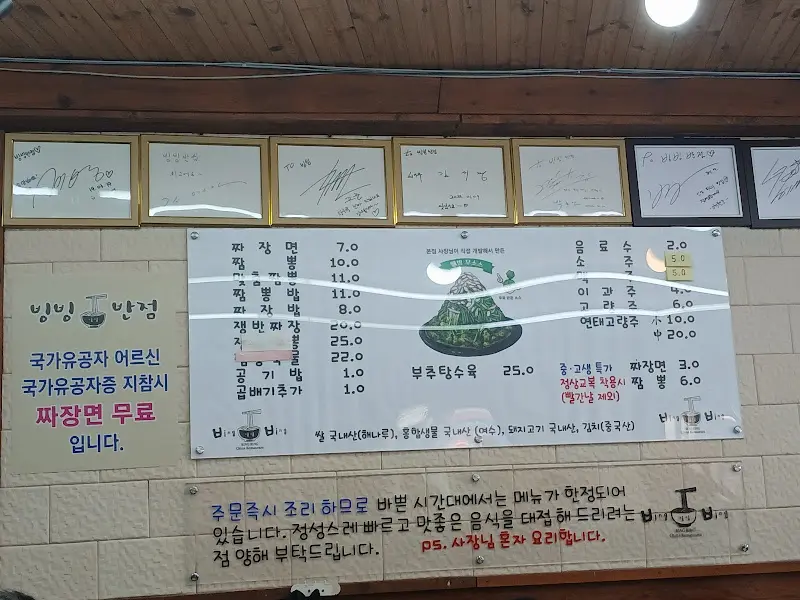 빙빙 반점
국가유공자 어르신
국가유공자증 지참시
짜장면 무료
입니다.
짜장면 7.0
짬뽕 10.0
맞춤짬뽕 11.0
짬뽕밥 11.0
짜장밥 8.0
쟁반짜장 20.0
25.0
22.0
공기밥 1.0
곱배기추가 1.0
본점 사장님이 직접 개발해서 만든
부추탕수육 25.0
음료수 2.0
소주 5.0
5.0
이과주
고량주 6.0
연태고량주 小 10.0
中 20.0
중·고생 특가 짜장면 3.0
정상교복 착용시 짬뽕 6.0
(빨간날 제외)
Bing Bing
Bing Bing
쌀 국내산(해나루), 홍합생물 국내산 (여수), 돼지고기 국내산, 김치(중국산)
주문즉시 조리 하므로 바쁜 시간대에서는 메뉴가 한정되어
있습니다. 정성스레 빠르고 맛좋은 음식을 대접 해 드리려는
점 양해 부탁드립니다. ps. 사장님 혼자 요리합니다.
Bing Bing